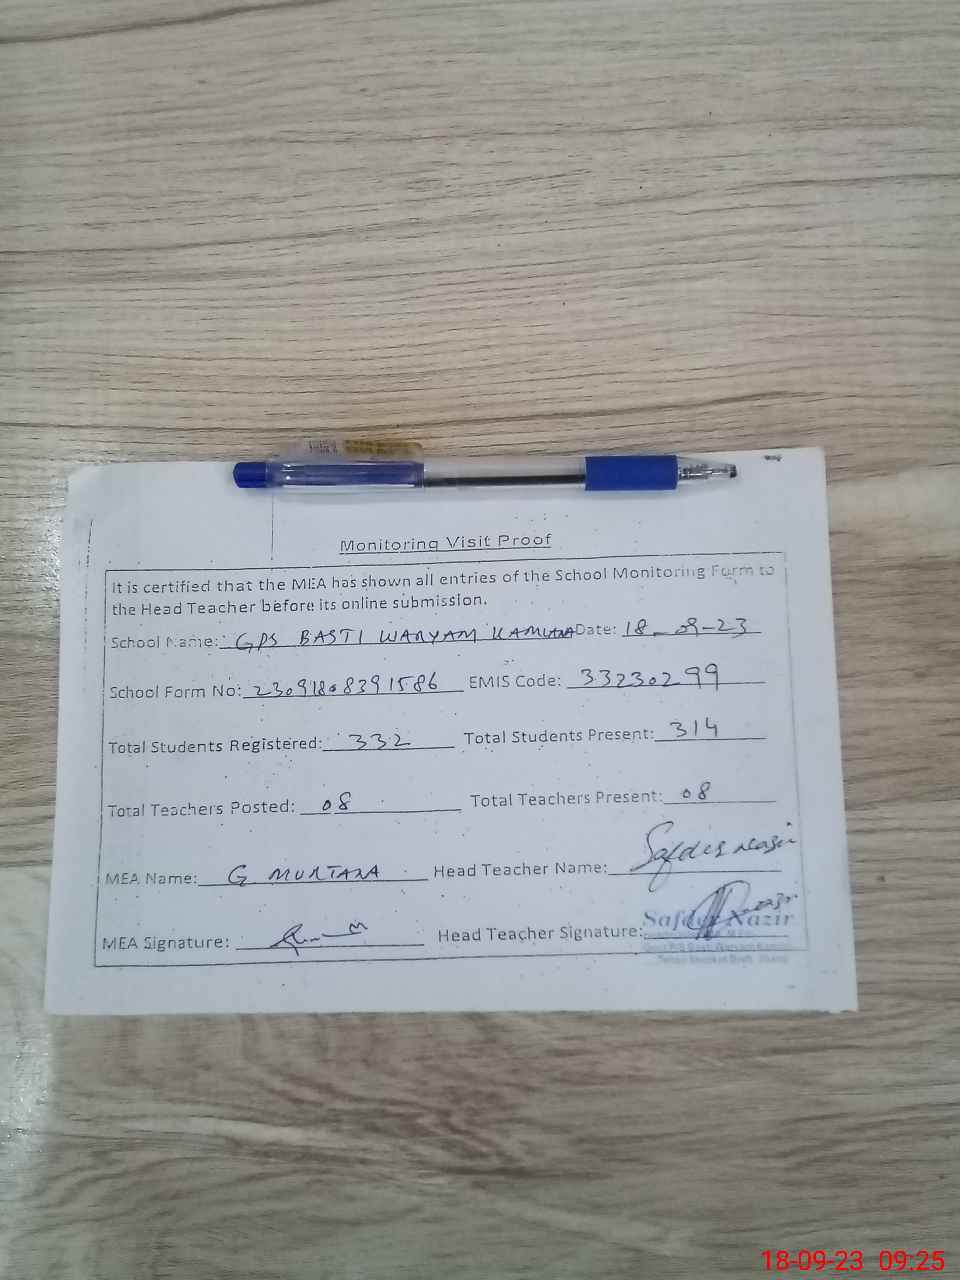 Monitoring Visit Proof
It is certified that the MEA has shown all entries of the School Monitoring Form to
the Head Teacher before its online submission.
School Name: GPS BASTI WARYAM KAMLANA Date: 18-09-23
School Form No: 23091808391586 EMIS Code: 33230299
Total Students Registered: 332 Total Students Present: 314
Total Teachers Posted: 08 Total Teachers Present: 08
MEA Name: G MURTAZA Head Teacher Name: Safder Nazir
MEA Signature: Head Teacher Signature: Safder Nazir
18-09-23 09:25